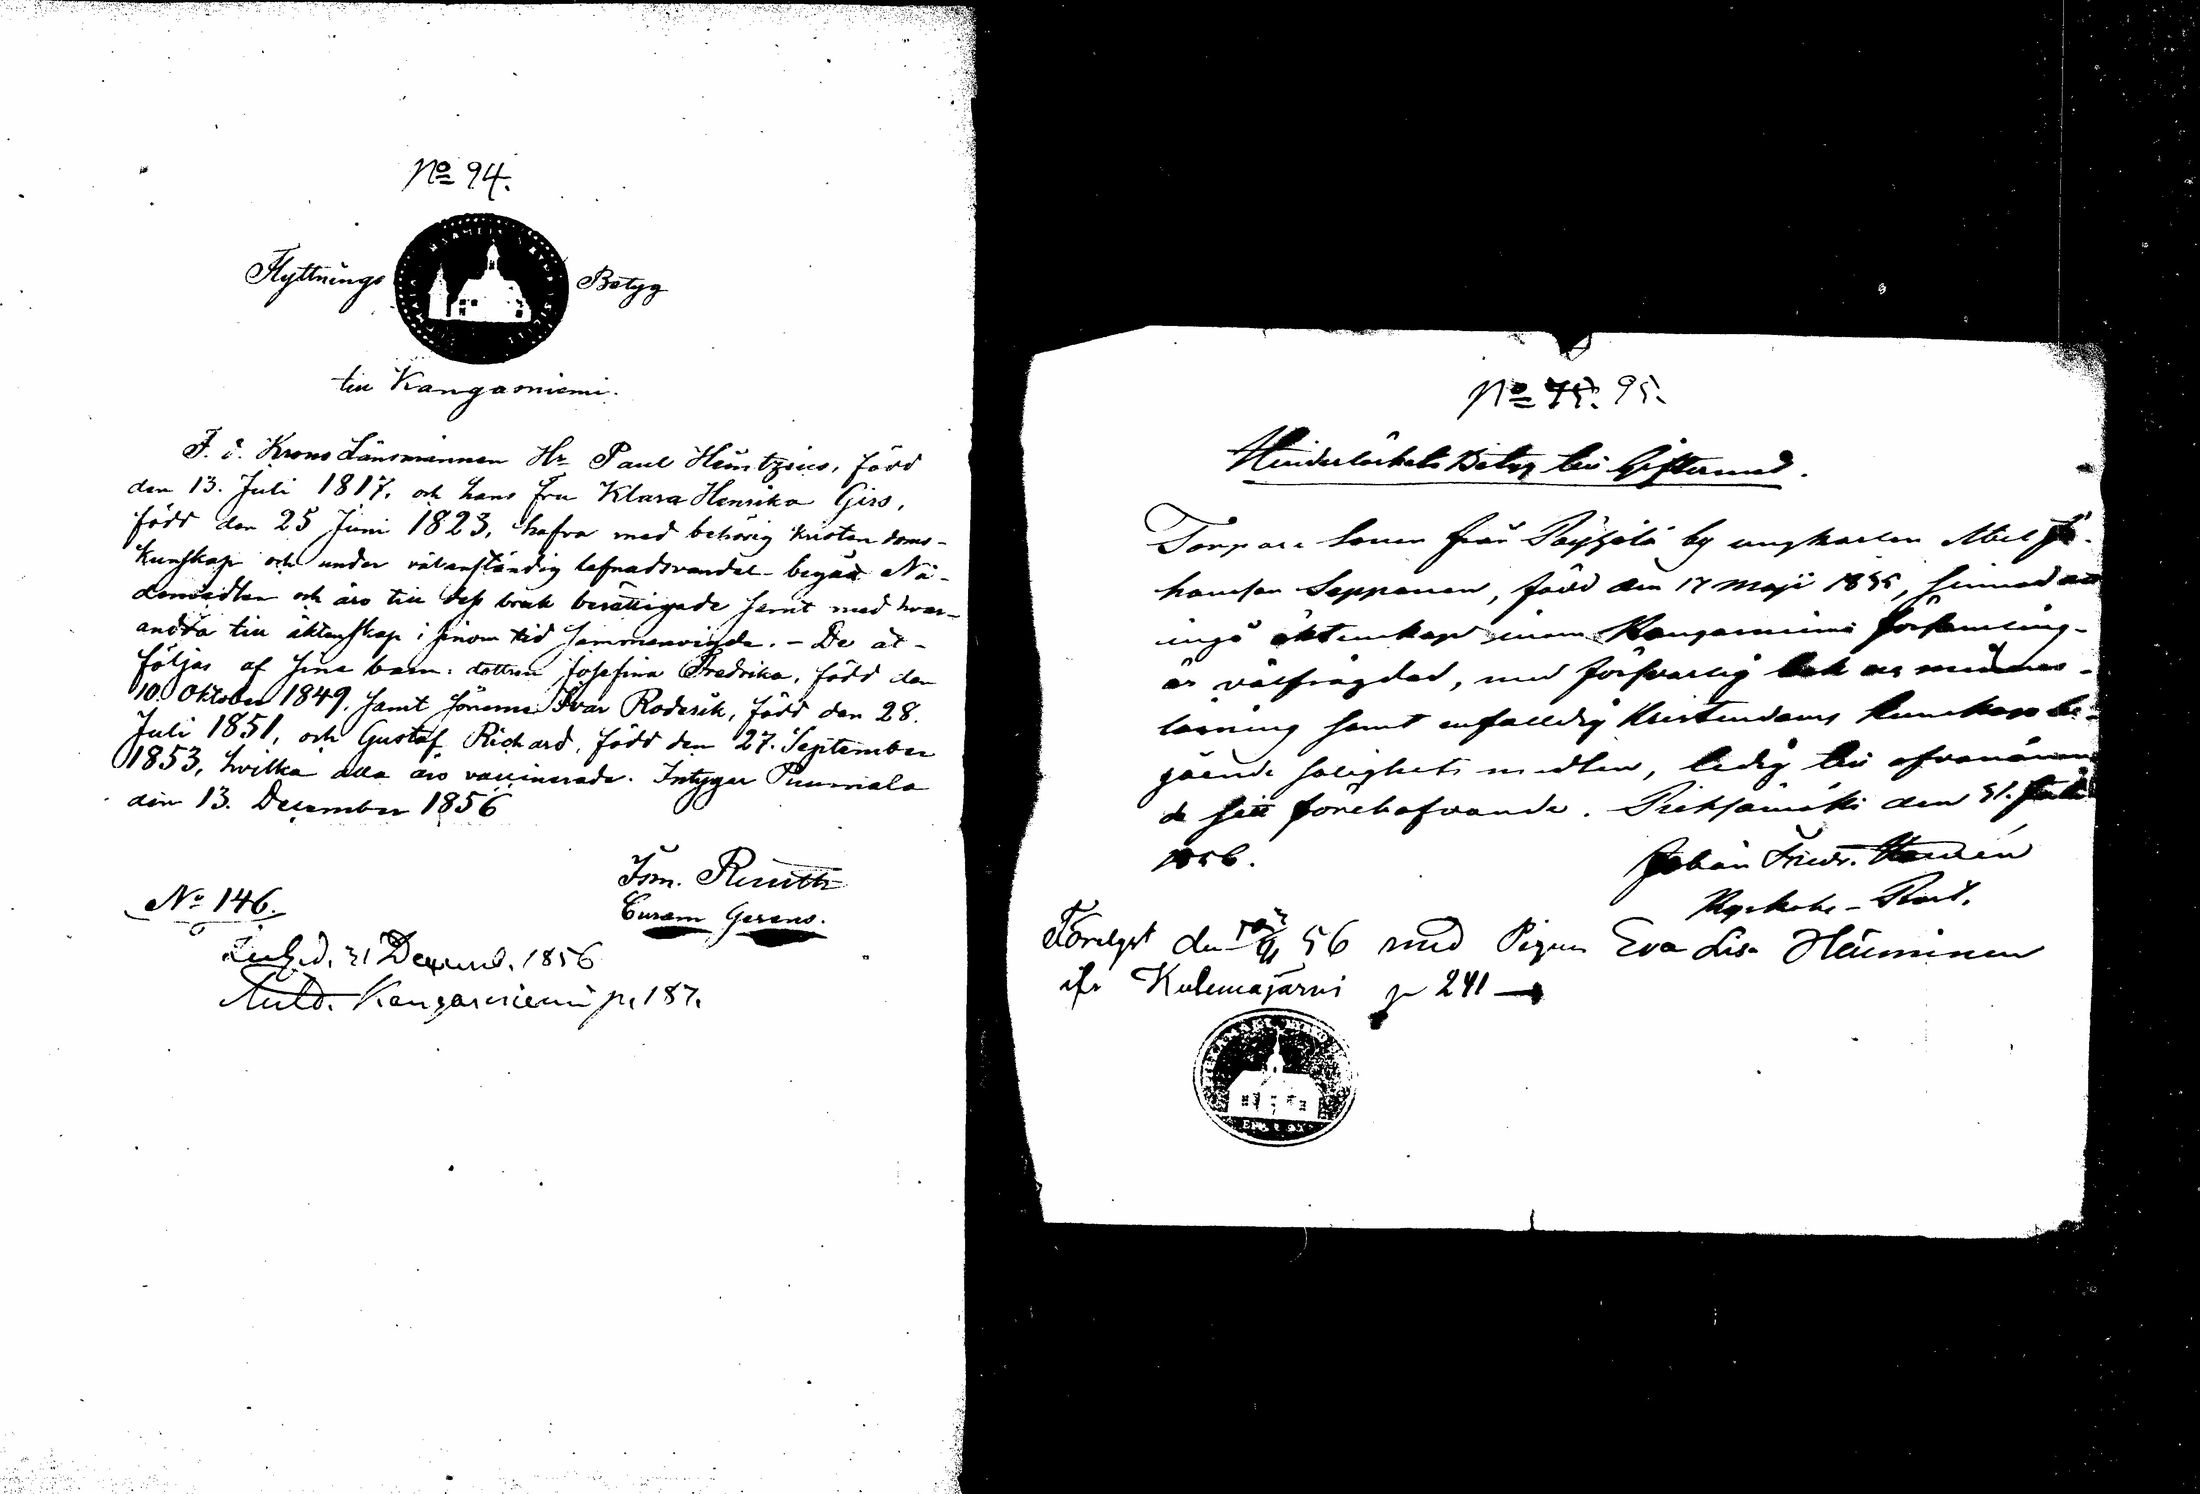 No 94.
Flyttnings Betyg
till Kangasniemi.
F. d. Krono Länsmannen Hr Paul Heintzius, född
den 13. Juli 1817, och hans fru Klara Henrika Girs,
född den 25 Juni 1823, hafva med behörig kristendoms-
kunskap och under välanständig lefnadsvandel begått Nå-
demedlen och äro till dess bruk berättigade samt med hvar-
andra till äktenskap i sinom tid sammanvigde. – De åt-
följas af sina barn: dottren Josefina Fredrika, född den
10. Oktober 1849, samt sönerne Ivar Roderik, född den 28.
Juli 1851, och Gustaf Richard, född den 27. September
1853, hvilka alla äro vaccinerade. Intygar Puumala
den 13. December 1856
Ism. Renuth
Curam Gerens.
No 146.
31 Decemb. 1856
Kangasniemi p. 187.
No 75. 95.
Hinderlöshets Betyg till Giftermål.
Torpare Sonen från by ungkarlen Abel Jo-
hansson Seppänen, född den 17 Maji 1835, sinnad att
ingå äktenskap inom Kangasniemi församling
är välfrägdad, med försvarlig bok och minnes-
läsning samt enfalldig Kristendoms kunskap be-
gående salighets medlen, ledig till ofvannämn
de sitt förehafvande. Pieksämäki den 31. Juli
1856.
Johan Friedr.
Kyrkohe - Past.
56 med Pigan Eva Lisa Heiminen
ifr. Kulemajärvi p 241